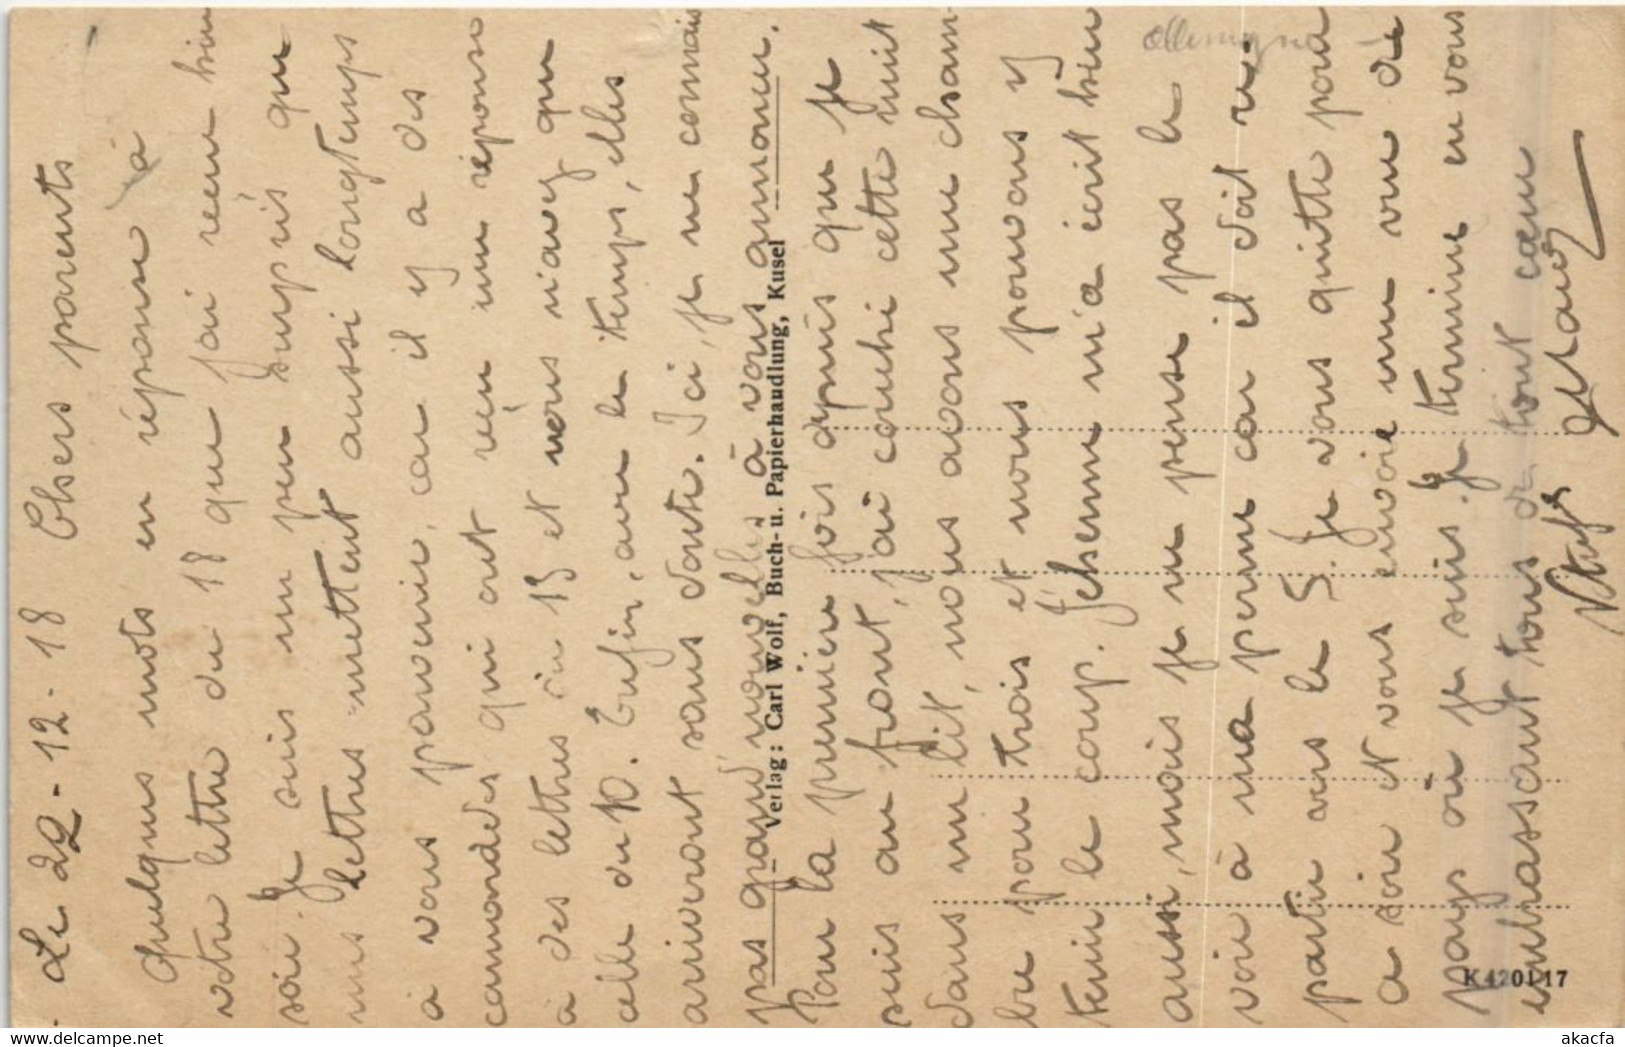 Le 22-12-18 Chers parents
Quelques mots en réponse à
votre lettre du 18 que j'ai reçu hier
soir. Je suis un peu surpris que
mes lettres mettent aussi longtemps
à vous parvenir, car il y a des
camarades qui ont reçu une réponse
à des lettres du 13 et vous n'avez que
celle du 10. Enfin, avec le temps, elles
arriveront sans doute. Ici, je ne connais
pas grand nouvelles à vous annoncer.
Pour la première fois depuis que je
suis au front, j'ai couché cette nuit
dans un lit, nous avons une cham-
bre pour trois et nous pouvons y
tenir le coup. m'a écrit hier
aussi, mais je ne pense pas le
voir à ma perme car il doit re-
partir vers le 5. Je vous quitte pour
ce soir et vous envoie une vue du
pays où je suis. Je termine en vous
embrassant tous de tout cœur
Votre fils
Allemagne
Verlag: Carl Wolf, Buch- u. Papierhandlung, Kusel
K 4201 17
akacfa